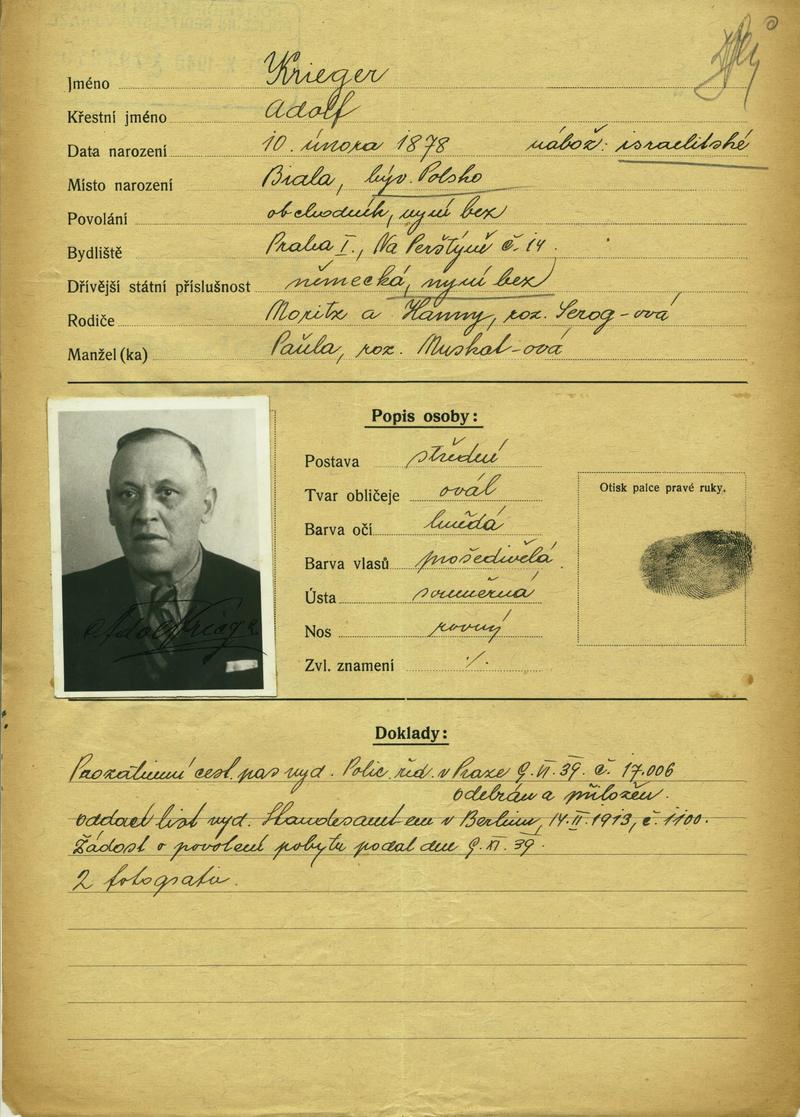 Jméno Krieger
Křestní jméno Adolf
Data narození 10. února 1878 nábož: israelitské
Místo narození Biala, býv. Polsko
Povolání obchodník, nyní bez
Bydliště Praha I., Na Perštýně č. 14.
Dřívější státní příslušnost německá, nyní bez
Rodiče Moritz a Hanny, roz. Serog-ová
Manžel(ka) Paula, roz. Muskat-ová
Popis osoby:
Postava střední
Tvar obličeje ovál
Barva očí hnědá
Barva vlasů prošedivělá.
Ústa souměrná
Nos rovný
Zvl. znamení ./.
Otisk palce pravé ruky.
Adolf Krieger
Doklady:
Prozatimní cest. pas vyd. Polic. řed. v Praze 9. VI. 39. č. 17.006
odebrán a přiložen.
oddací list vyd. Standesamtem v Berlíně, 14. II. 1913, č. 1100.
Žádost o povolení pobytu podal dne 9. XI. 39.
2 fotografie.